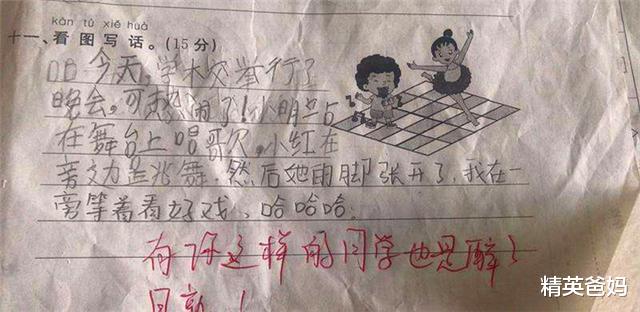 kàn tú xiě huà
十一、看图写话。(15分)
今天,学校举行了
晚会,可热闹了!小明站
在舞台上唱歌,小红在
旁边跳舞,然后她两脚张开了,我在一
旁等着看好戏、哈哈哈.
有你这样的同学也是醉了
精英爸妈